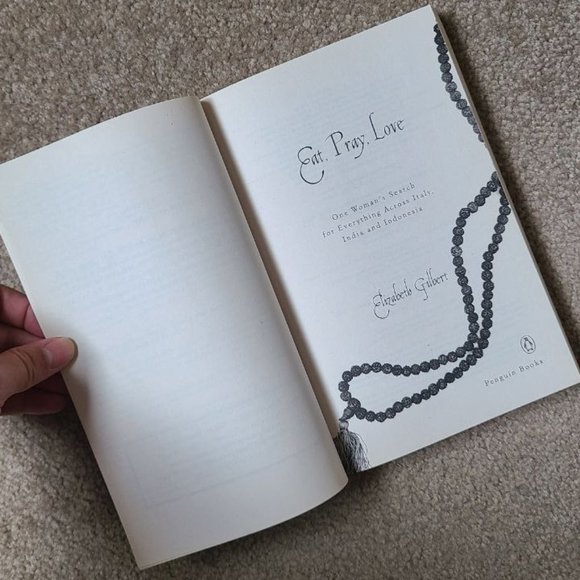 Eat, Pray, Love
One Woman's Search
for Everything Across Italy,
India and Indonesia
Elizabeth Gilbert
Penguin Books